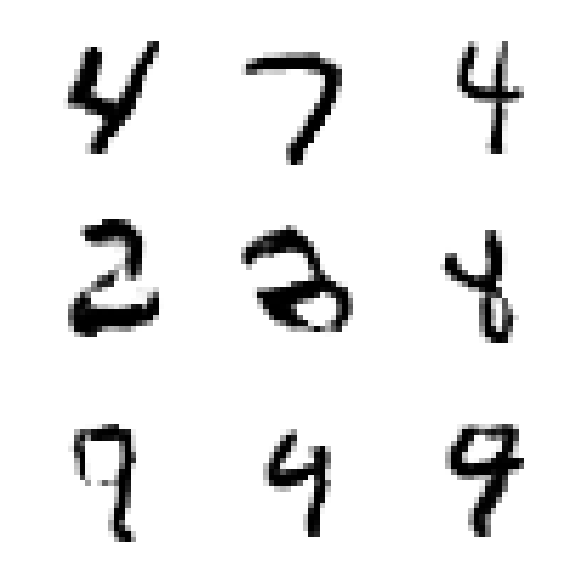 4 7 4
2 2 8
9 4 9